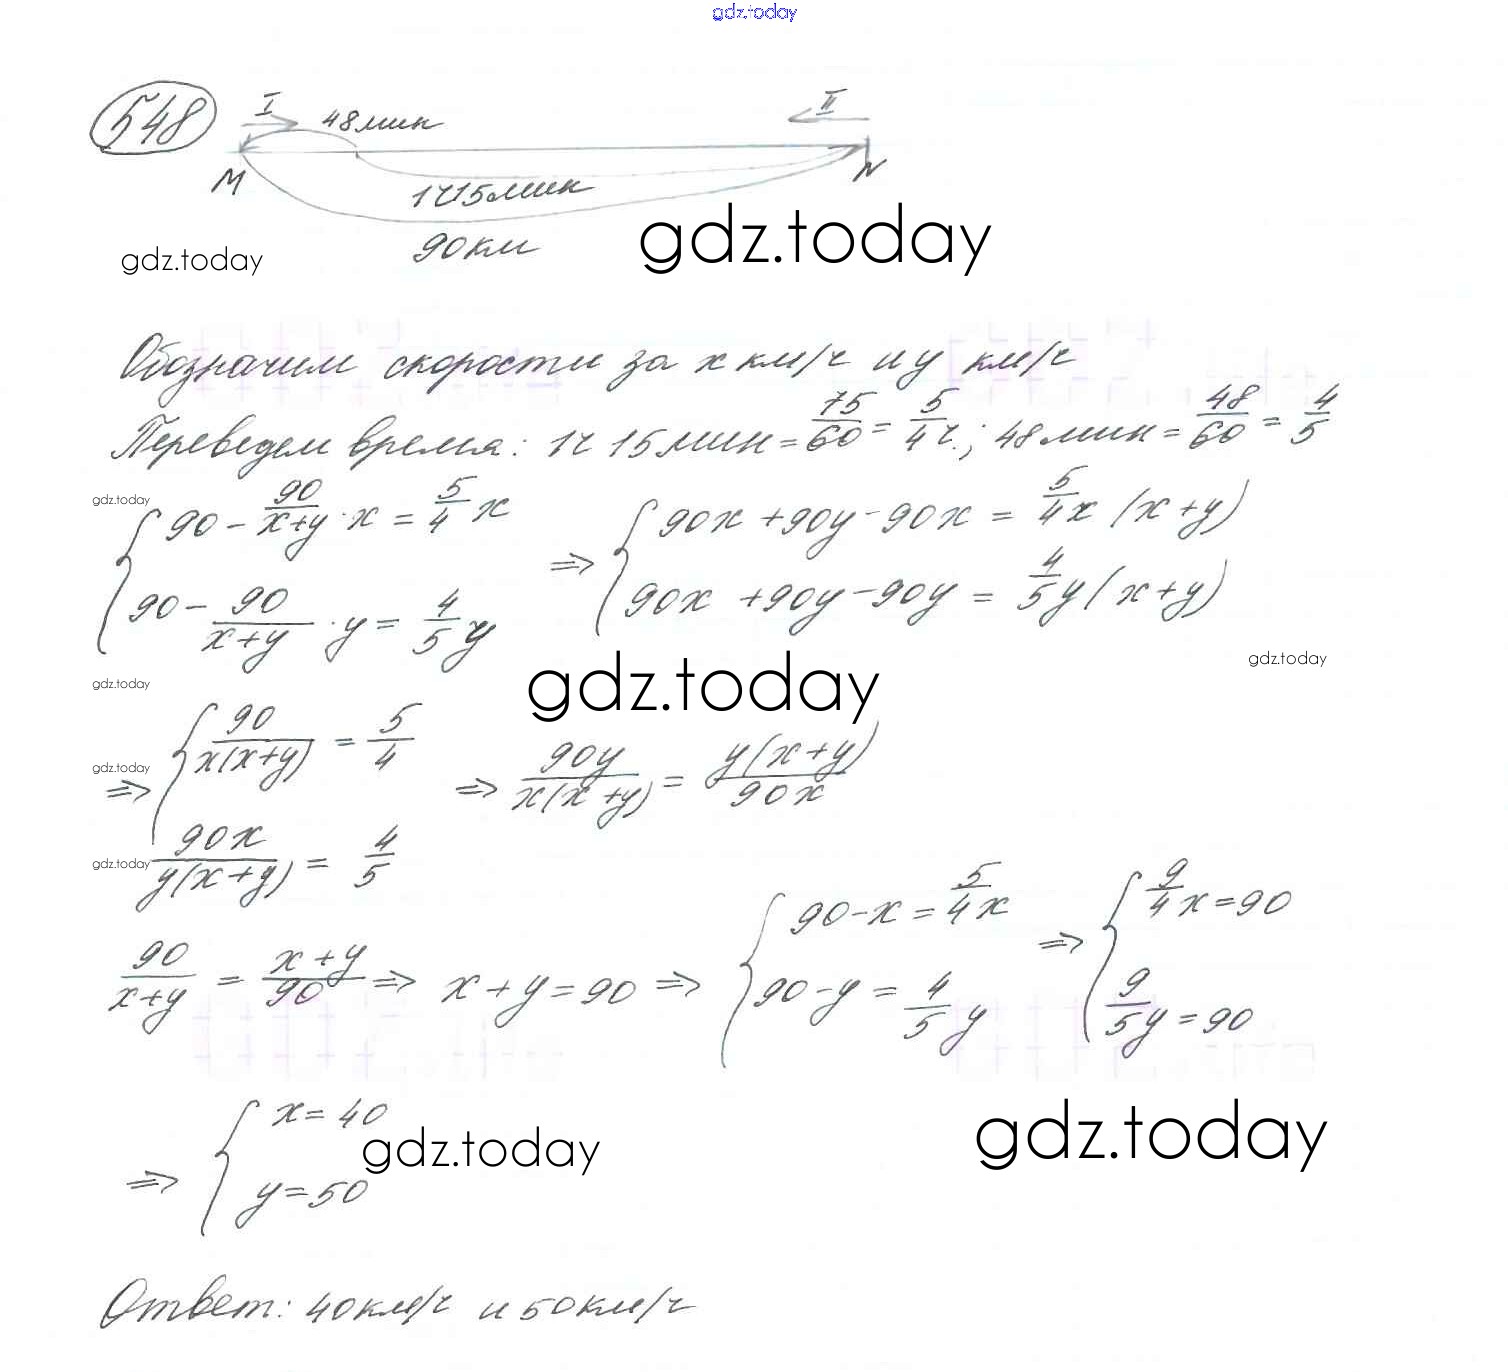 gdz.today
548
I 48мин II
M N
1ч15мин
90км
gdz.today
gdz.today
Обозначим скорости за x км/ч и y км/ч
Переведем время: 1ч 15мин = 75/60 = 5/4 ч.; 48мин = 48/60 = 4/5
gdz.today
{ 90 - 90/(x+y) · x = 5/4 x => { 90x + 90y - 90x = 5/4 x (x+y)
90 - 90/(x+y) · y = 4/5 y 90x + 90y - 90y = 4/5 y (x+y)
gdz.today
gdz.today
gdz.today
gdz.today
=> { 90/(x(x+y)) = 5/4 => 90y/(x(x+y)) = y(x+y)/(90x)
gdz.today
90x/(y(x+y)) = 4/5
90/(x+y) = (x+y)/90 => x+y = 90 => { 90 - x = 5/4 x => { 9/4 x = 90
90 - y = 4/5 y 9/5 y = 90
=> { x = 40
y = 50
gdz.today
gdz.today
Ответ: 40км/ч и 50км/ч